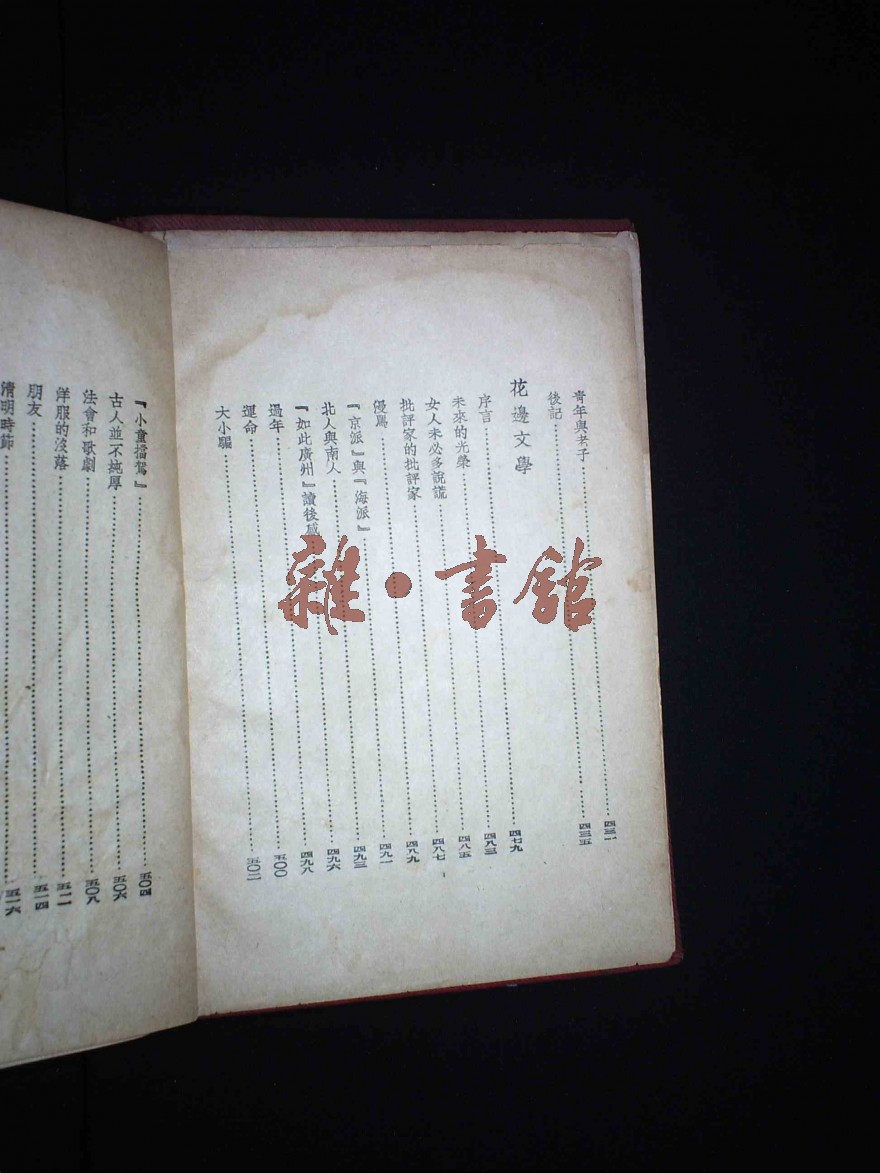 青年與老子……四三一
後記……四三五
花邊文學
序言……四七九
未來的光榮……四八三
女人未必多說謊……四八五
批評家的批評家……四八七
謾罵……四八九
『京派』與『海派』……四九一
北人與南人……四九三
『如此廣州』讀後感……四九六
過年……四九八
運命……五〇〇
大小騙……五〇二
『小童擋駕』……五〇四
古人並不純厚……五〇六
法會和歌劇……五〇八
洋服的沒落……五一一
朋友……五一四
清明時節……五一六
雜·書館